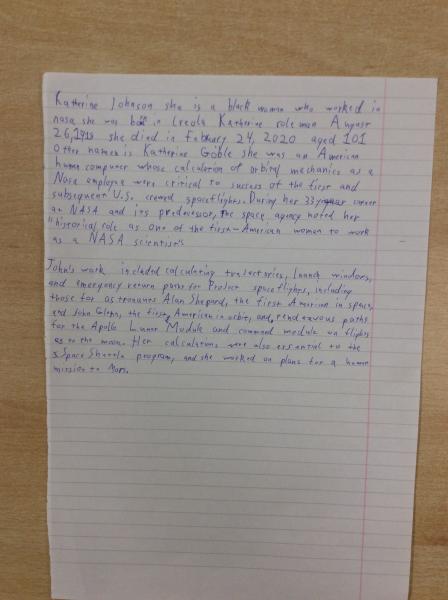 Katherine Johnson she is a black woman who worked in
nasa she was born in Creola Katherine coleman August
26,1918 she died in Febuary 24, 2020 aged 101
Other names is Katherine Goble she was an American
human computer whose calculation of orbital mechanics as a
Nasa employe were critical to success of the first and
subsequent U.S. crewed spaceflights. During her 33 year career
at NASA and its predevessor, the space agency noted her
"historical role as one of the first-American women to work
as a NASA scientist"
John's work included calculating trajectories, launch windows,
and emergency return paths for Project spaceflights, including
those for astronauts Alan Shepard, the first American in space,
and John Glenn, the first American in orbit, and rendezvous paths
for the Apollo Lunar Module and command module on flights
to the moon. Her calculations were also essential to the
Space Shuttle program, and she worked on plans for a human
mission to Mars.